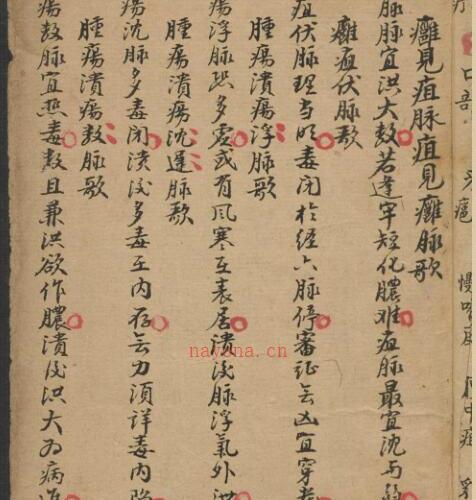 癰見疽脉疽見癰脉歌
脉宜洪大数若逢牢短化膿难疽脉最宜沈与
癰疽伏脉歌
疽伏脉理当明毒闭於經六脉停審証无凶宜穿
腫瘍潰瘍浮脉歌
瘍浮脉恐多虚或有風寒在表居潰後脉浮氣外
腫瘍潰瘍沈遲脉歌
瘍沈脉多毒闭潰後多毒在内存无力須詳毒内
腫瘍潰瘍数脉歌
瘍数脉宜熱毒数且兼洪欲作膿潰後洪大为病
nayana.cn